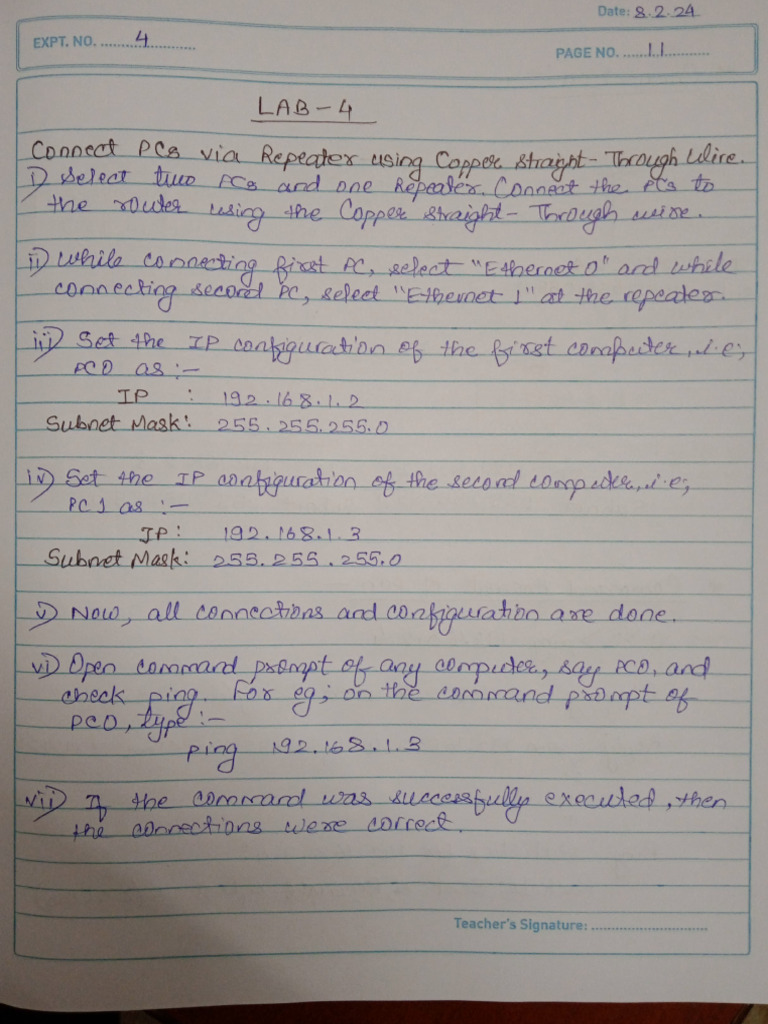 Date: 8.2.24
EXPT. NO. 4
PAGE NO. 11
LAB-4
Connect PCs via Repeater using Copper straight-Through Wire.
i) Select two PCs and one Repeater. Connect the PCs to
the router using the Copper straight-Through wire.
ii) While connecting first PC, select "Ethernet 0" and while
connecting second PC, select "Ethernet 1" at the repeater.
iii) Set the IP configuration of the first computer, i.e;
PC0 as :-
IP : 192.168.1.2
Subnet Mask: 255.255.255.0
iv) Set the IP configuration of the second computer, i.e;
PC1 as :-
IP: 192.168.1.3
Subnet Mask: 255.255.255.0
v) Now, all connections and configuration are done.
vi) Open command prompt of any computer, say PC0, and
check ping. For eg; on the command prompt of
PC0, type :-
ping 192.168.1.3
vii) If the command was successfully executed, then
the connections were correct.
Teacher's Signature: